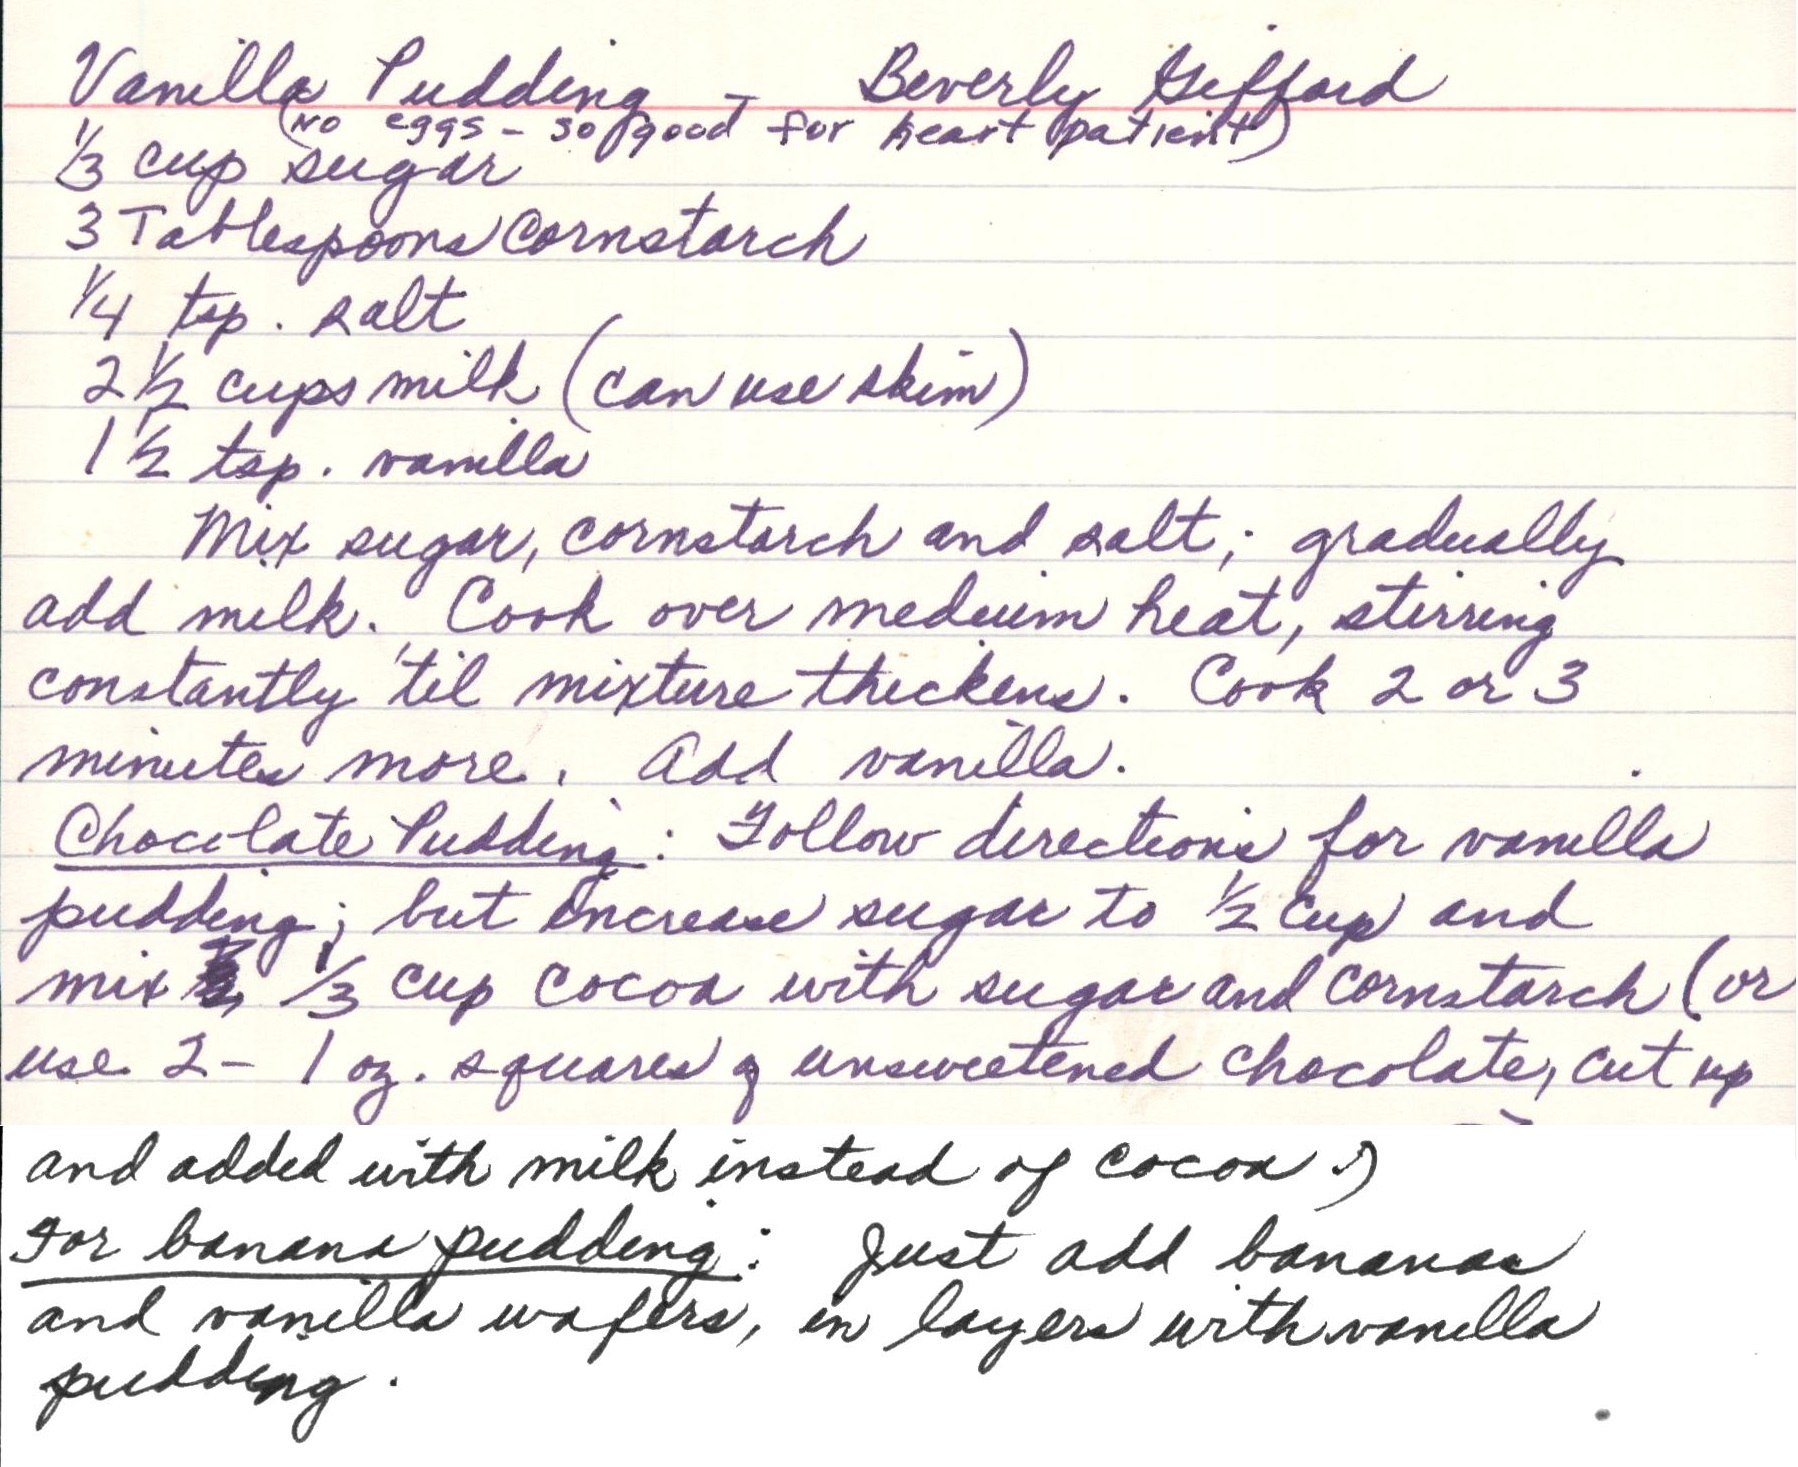 Vanilla Pudding - Beverly Gifford
(No eggs - so good for heart patient)
1/3 cup sugar
3 Tablespoons Cornstarch
1/4 tsp. salt
2 1/2 cups milk (can use skim)
1 1/2 tsp. vanilla
Mix sugar, cornstarch and salt; gradually
add milk. Cook over medium heat, stirring
constantly 'til mixture thickens. Cook 2 or 3
minutes more. Add vanilla.
Chocolate Pudding: Follow directions for vanilla
pudding; but increase sugar to 1/2 cup and
mix 1/3 cup cocoa with sugar and cornstarch (or
use 2 - 1 oz. squares of unsweetened chocolate, cut up
and added with milk instead of cocoa.)
For banana pudding: Just add bananas
and vanilla wafers, in layers with vanilla
pudding.